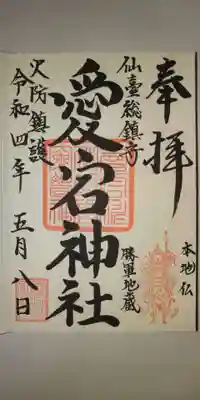 奉拝
本地仏
仙臺総鎮守
勝軍地蔵
愛宕神社
火防鎮護
令和四年 五月八日